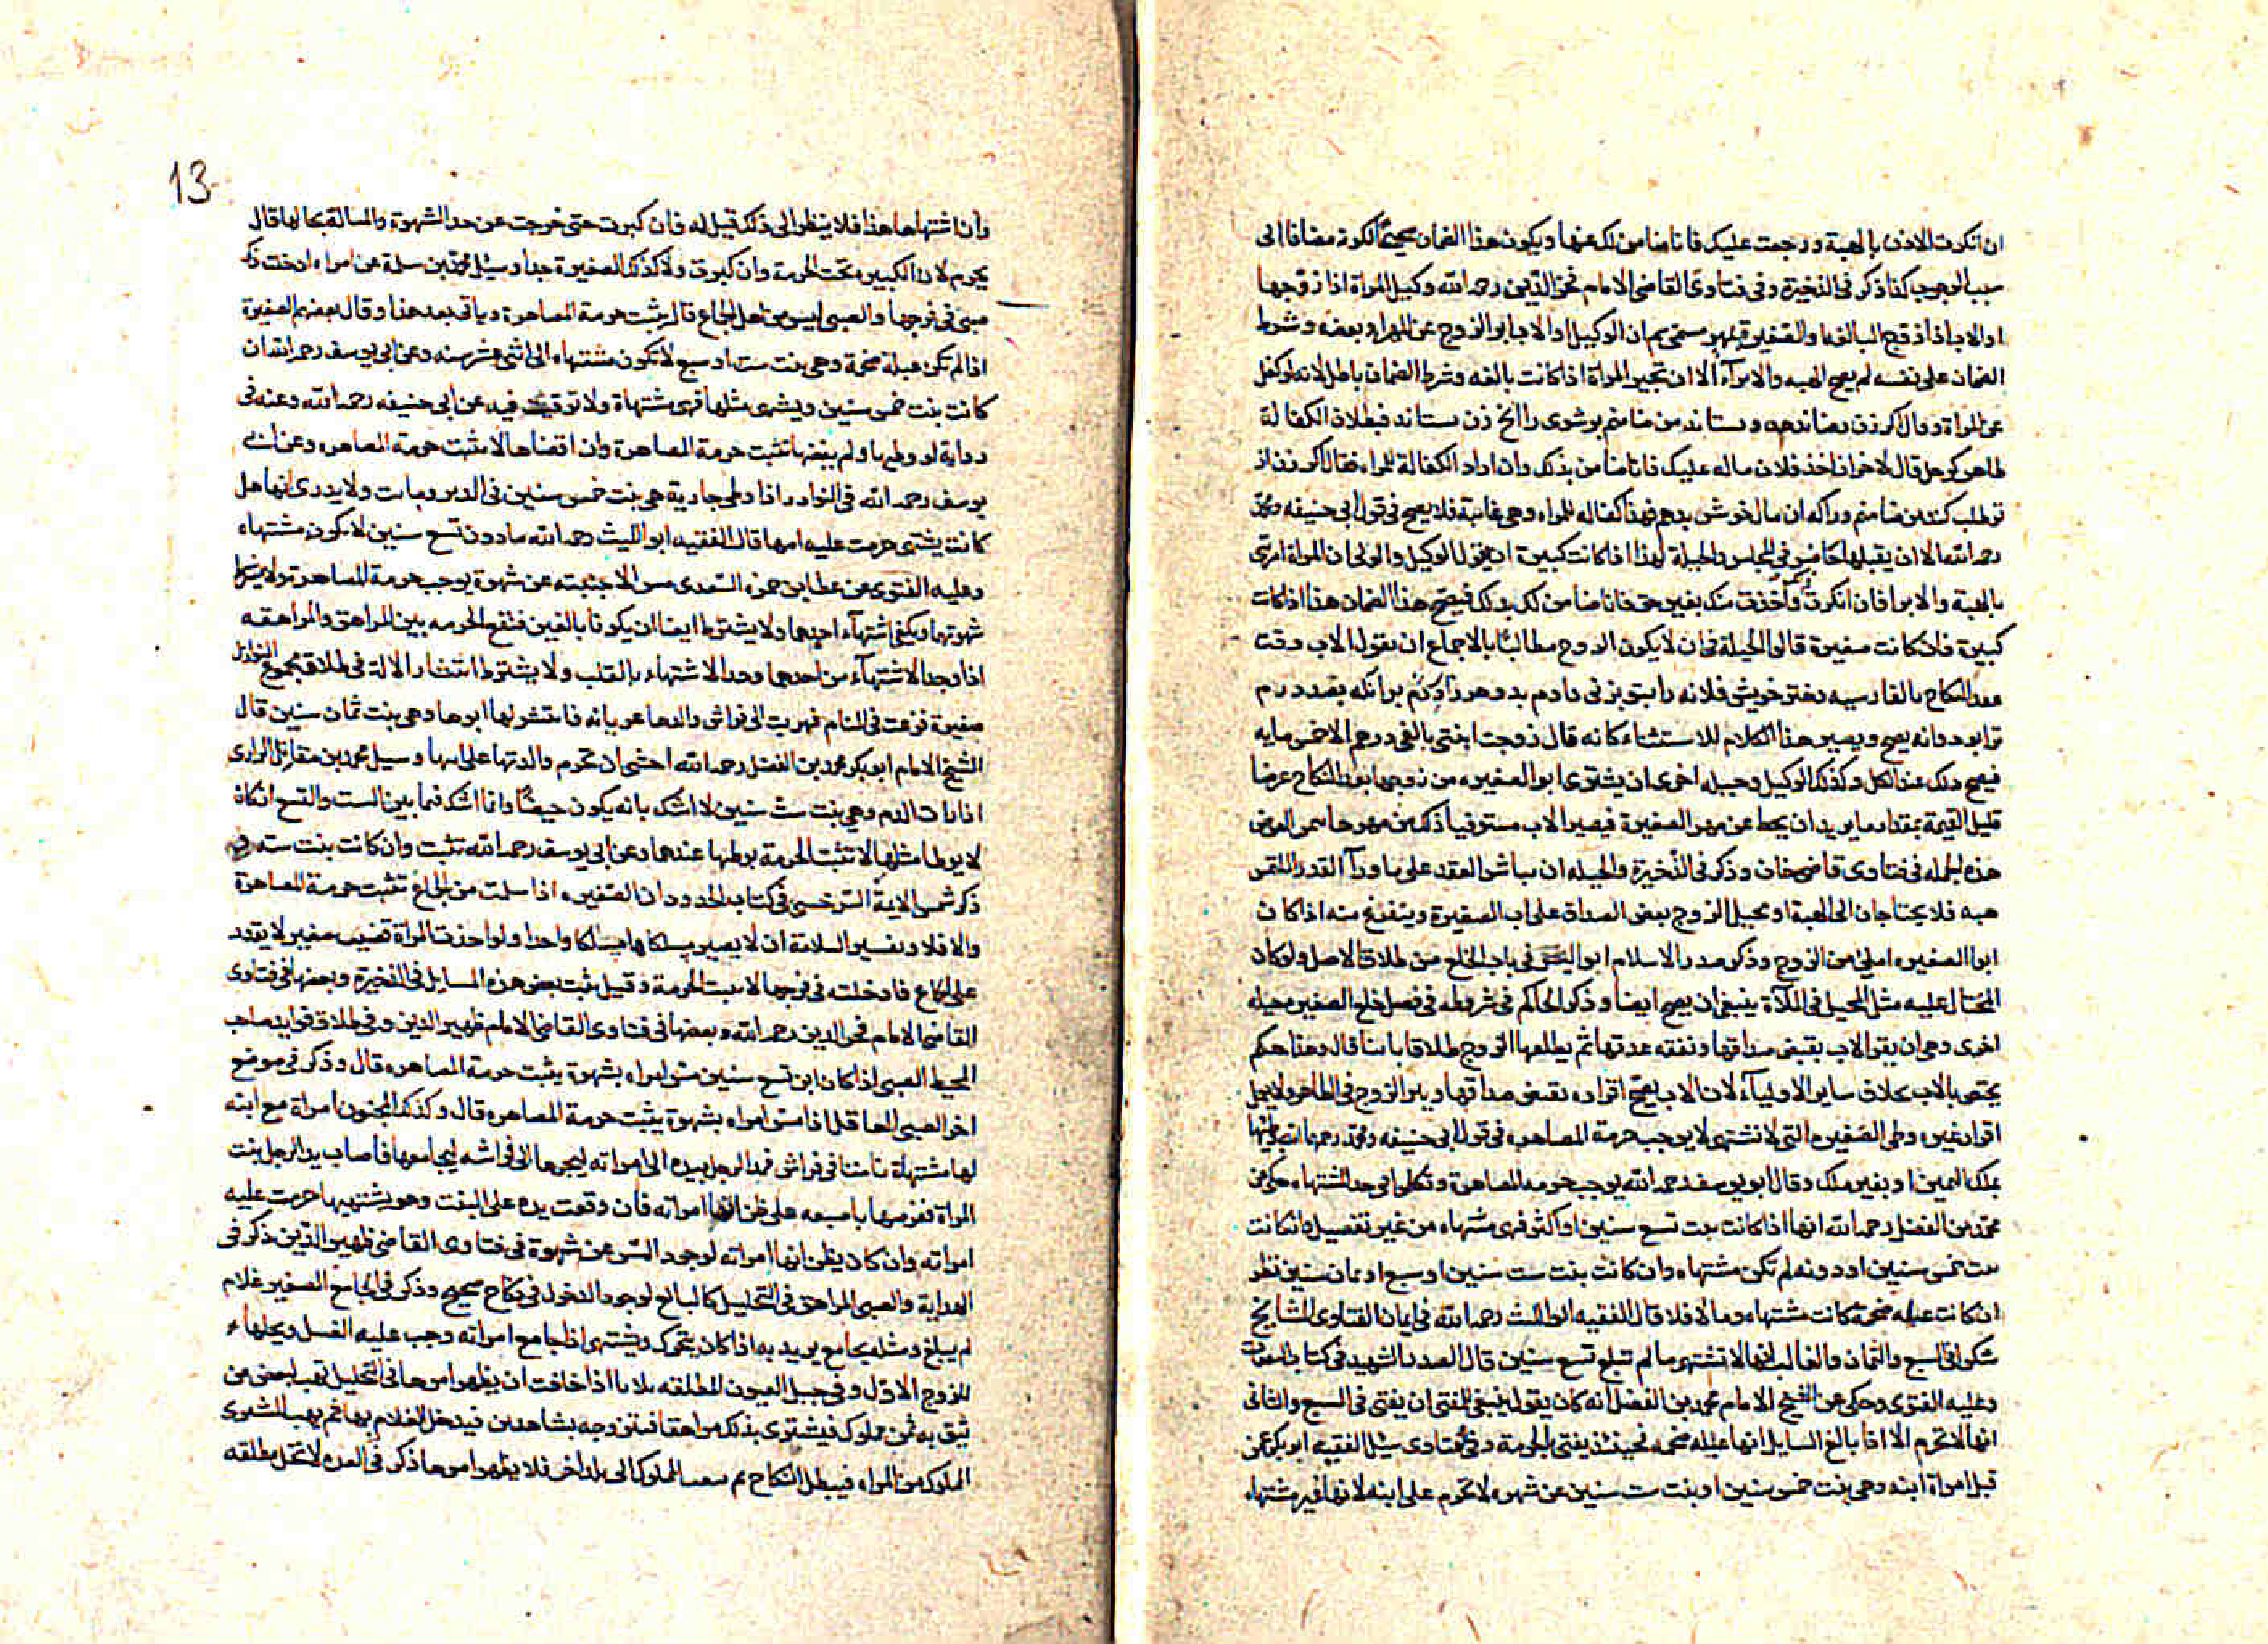 ان انكرت الاذن بالهبة ورجعت عليك فانا ضامن لك عنها ويكون هذا الضمان صحيحا لكونه مضافا الى
سبب الوجوب كذا ذكر فى الذخيرة وفى فتاوى القاضى الامام فخر الدين رحمه الله وكيل المراة اذا زوجها
او الاب اذا زوج البالغة او الصغيرة بمهر مسمى ثم ان الوكيل او الاب ابرا الزوج عن المهر او بعضه وشرط
الضمان على نفسه لم يصح الهبه والابرآء الا ان تجيز المراة اذا كانت بالغه وشرط الضمان باطل لانه لو كفل
عن المراة وقال اكر زن رضا ندهد وستاند من ضامنم بر شوى را انج زن ستاند فبطلان الكفالة
ظاهر كرجل قال لاخر ان اخذ فلان ماله عليك فانا ضامن بذلك وان اراد الكفالة للمراه فقال اكر زن از
تو طلب كند من ضامنم وراكه ان مال خوش بدهم فهذا كفاله للمراه وهى غايبة فلا يصح فى قول ابى حنيفه ومحمد
رحمه الله الا ان يقبلها حاضر فى المجلس والحيلة لهذا اذا كانت كبيرة ان يقول الوكيل والولى ان المراة امرتى
بالهبة والابرا فان انكرت واخذت منك بغير حق فانا ضامن لك بذلك فيصح هذا الضمان هذا اذا كانت
كبيرة فاذا كانت صغيرة قالوا الحيلة فى ان لا يكون الزوج مطالبا بالاجماع ان يقول الاب وقت
عقد النكاح بالفارسيه دختر خويش فلانه را بتو بزنى دادم بدو هزار درم برانكه بصد درم
ترا بود وانه يصح ويصير هذا الكلام للاستثناء كانه قال زوجت ابنتى بالفى درهم الا خمس مايه
فيصح ذلك عند الكل وكذلك الوكيل وحيله اخرى ان يشترى ابو الصغيره من زوجها بعد النكاح عرضا
قليل القيمة بمقدار ما يريد ان يحط عن مهر الصغيرة فيصير الاب مستوفيا ذلك من مهرها ثمن العرض
هذه الجمله فى فتاوى قاضى خان وذكر فى الذخيرة والحيله ان يباشر العقد على ما ورآ القدر الملتمس
هبه فلا يحتاجان الى الهبة او يحيل الزوج بعض الصداق على اب الصغيرة ويتفرغ منه اذا كان
ابو الصغيره املى من الزوج وذكر صدر الاسلام ابو اليسر فى باب الخلع من طلاق الاصل ولو كان
المحتال عليه مثل المحيل فى الملآة ينبغى ان يصح ايضا وذكر الحاكم فى شروطه فى فصل خلع الصغير حيله
اخرى وهى ان يقر الاب بقبض صداقها ونفقه عدتها ثم يطلقها الزوج طلاقا باينا قال وهذا حكم
يختص بالاب بخلاف ساير الاوليآء لان الاب يصح اقراره بقبض صداقها ويبرا الزوج فى الظاهر ولا يعمل
اقرار غيره وطى الصغيره التى لا تشتهى لا يوجب حرمة المصاهره فى قول ابى حنيفه ومحمد رحمهما الله وطيها
بملك اليمين او بغير ملك وقال ابو يوسف رحمه الله يوجب حرمه المصاهرة وتكلموا فى حد الشتهاه حكى عن
محمد بن الفضل رحمه الله انها اذا كانت بنت تسع سنين او اكثر فهى مشتهاه من غير تفصيل وان كانت
بنت خمس سنين او دونه لم تكن مشتهاه وان كانت بنت ست سنين او سبع او ثمان سنين نظر
ان كانت عبله ضخمة كانت مشتهاه وما لا فلا قال الفقيه ابو الليث رحمه الله فى ايمان الفتاوى المشايخ
شكوا فى السبع والثمان والغالب انها لا تشتهى ما لم تبلغ تسع سنين قال الصدر الشهيد فى كتاب النفقات
وعليه الفتوى وحكى عن الشيخ الامام محمد بن الفضل انه كان يقول ينبغى للمفتى ان يفتى فى السبع والثمانى
انها لا تحرم الا اذا بالغ السايل انها عبله ضخمه فحينئذ يفتى بالحرمة وفى الفتاوى سئل الفقيه ابو بكر عن
قبل امراة ابنه وهى بنت خمس سنين او بنت ست سنين عن شهوه لا تحرم على ابنه لانها غير مشتهاه
13
وان اشتهاها هذا فلا ينظر الى ذلك قيل له فان كبرت حتى خرجت عن حد الشهوة والمسالة بحالها قال
يحرم لان الكبيره تحت الحرمة وان كبرت ولا كذلك الصغيرة جدا وسئل محمد بن سلمة عن امراه ادخلت ذكر
صبى فى فرجها والصبى ليس من اهل الجماع قال يثبت حرمة المصاهرة وياتى بعد هذا وقال بعضهم الصغيرة
اذا لم تكن عبلة ضخمة وهى بنت ست او سبع لا تكون مشتهاه الى اثنى عشر سنه وعن ابى يوسف رحمه الله ان
كانت بنت خمس سنين ويشتهى مثلها فهى مشتهاة ولا توقيت فيه عن ابى حنيفه رحمه الله وعنه فى
رواية لو وطيها ولم يفضها تثبت حرمة المصاهرة وان افضاها لا تثبت حرمة المصاهره وعن ابى
يوسف رحمه الله فى النوادر اذا وطى جارية هى بنت خمس سنين فى الدبر وماتت ولا يدرى انها هل
كانت يشتهى حرمت عليه امها قال الفقيه ابو الليث رحمه الله ما دون تسع سنين لا يكون مشتهاه
وعليه الفتوى عن عطا بن حمزه السغدى مس الاجنبيه عن شهوة يوجب حرمة المصاهرة ولا يشترط
شهوتهما ويكفى اشتهآء احدهما ولا يشترط ايضا ان يكونا بالغين فتقع الحرمه بين المراهق والمراهقه
اذا وجد الاشتهآء من احدهما وحد الاشتهاء بالقلب ولا يشترط انتشار الالة فى طلاق مجموع النوازل
صغيرة فزعت فى المنام فهربت الى فراش والدها عريانه فانتشر لها ابوها وهى بنت ثمان سنين قال
الشيخ الامام ابو بكر محمد بن الفضل رحمه الله اخشى ان تحرم والدتها على ابيها وسيل محمد بن مقاتل الرازى
اذا رات الدم وهى بنت ست سنين لا اشك بانه يكون حيضا وانا اشك فيما بين الست والتسع ان كان
لا يوطا مثلها لا تثبت الحرمة بوطيها عندهما وعن ابى يوسف رحمه الله تثبت وان كانت بنت سته
ذكر شمس الايمة السرخسى فى كتاب الحدود ان الصغيره اذا سلمت من الجماع تثبت حرمة المصاهرة
والا فلا وتفسير السلامة ان لا يصير مسلكاها مسلكا واحدا ولو اخذت المراة قضيب صغير لا يقدر
على الجماع فادخلته فى فرجها لا تثبت الحرمة وقيل يثبت بعض هذه المسايل فى الذخيرة وبعضها فى فتاوى
القاضى الامام فخر الدين رحمه الله وبعضها فى فتاوى القاضى الامام ظهير الدين وفى طلاق فوايد صاحب
المحيط الصبى اذا كان ابن تسع سنين مس امراه بشهوة يثبت حرمة المصاهره قال وذكر فى موضع
اخر الصبى العاقل اذا مس امراه بشهوة يثبت حرمة المصاهره قال وكذلك المجنون امراة مع ابنه
لها مشتهاة ناما فى فراش فمد الرجل بيده الى امراته ليجرها الى فراشه ليجامعها فاصاب يد الرجل بنت
المراة فغرمها باصبعه على ظن انها امراته فان وقعت يده على البنت وهو يشتهيها حرمت عليه
امراته وان كان يظن انها امراته لوجود المس عن شهوة فى فتاوى القاضى ظهير الدين ذكر فى
الهداية والصبى المراهق فى التحليل كالبالغ لوجود الدخول فى نكاح صحيح وذكر فى الجامع الصغير غلام
لم يبلغ ومثله يجامع يريد به اذا كان يتحرك ويشتهى اذا جامع امراته وجب عليه الغسل ويحلها
للزوج الاول وفى حيل العيون المطلقه ثلاثا اذا خافت ان يظهر امرها فى التحليل تهب لبعض من
تثق به ثمن مملوك فيشترى بذلك مراهقا فتزوجه بشاهدين فيدخل الغلام بها ثم يهب المشترى
المملوك من المراه فيبطل النكاح ثم تبعث المملوك الى بلد اخر فلا يظهر امرها ذكر فى العده لا تحل مطلقه